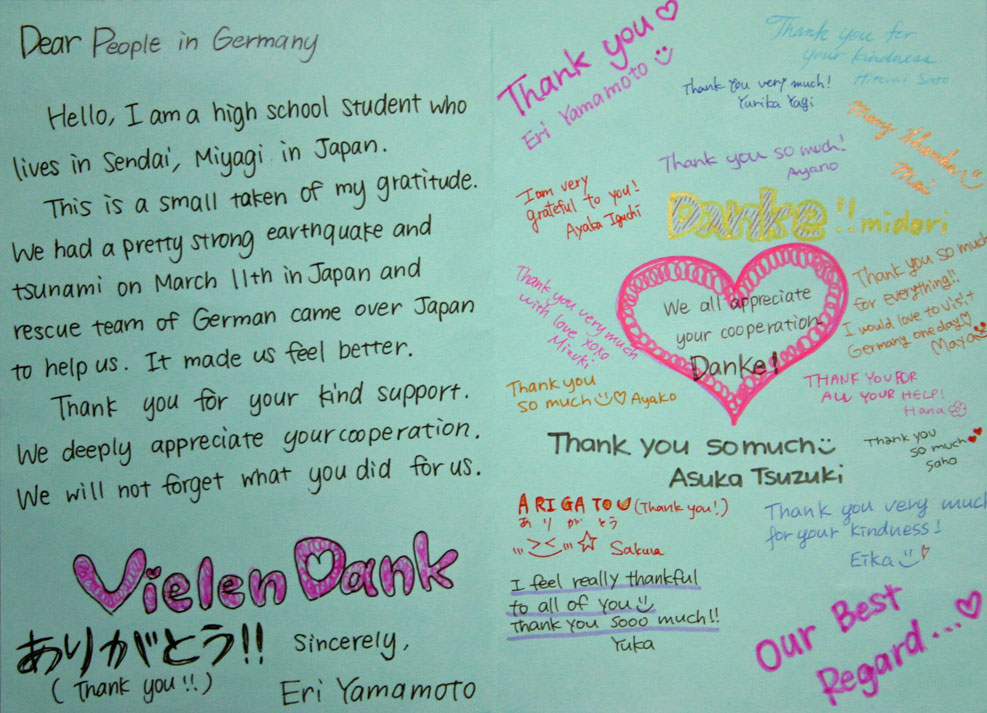 Dear People in Germany
Hello, I am a high school student who
lives in Sendai, Miyagi in Japan.
This is a small taken of my gratitude.
We had a pretty strong earthquake and
tsunami on March 11th in Japan and
rescue team of German came over Japan
to help us. It made us feel better.
Thank you for your kind support.
We deeply appreciate your cooperation.
We will not forget what you did for us.
Vielen Dank
ありがとう!!
(Thank you!!)
Sincerely,
Eri Yamamoto
Thank you♡
Eri Yamamoto
Thank you for
your kindness.
Hitomi Sato
Thank you very much!
Yurika Yagi
Many thanks
Mai
Thank you so much!
Ayano
I am very
grateful to you!
Ayaka Iguchi
Danke!! midori
Thank you very much
with love xoxo
Mizuki
We all appreciate
your cooperation.
Danke!
Thank you so much
for everything!!
I would love to visit
Germany one day♡
Mayo
Thank you
so much♡ Ayako
THANK YOU FOR
ALL YOUR HELP!
Hana
Thank you so much
Asuka Tsuzuki
Thank you
so much
Saho
ARIGATOU (Thank you!)
あ り が と う
'''><'''☆ Sakura
Thank you very much
for your kindness!
Eika
I feel really thankful
to all of you
Thank you sooo much!!
Yuka
Our Best
Regard...♡